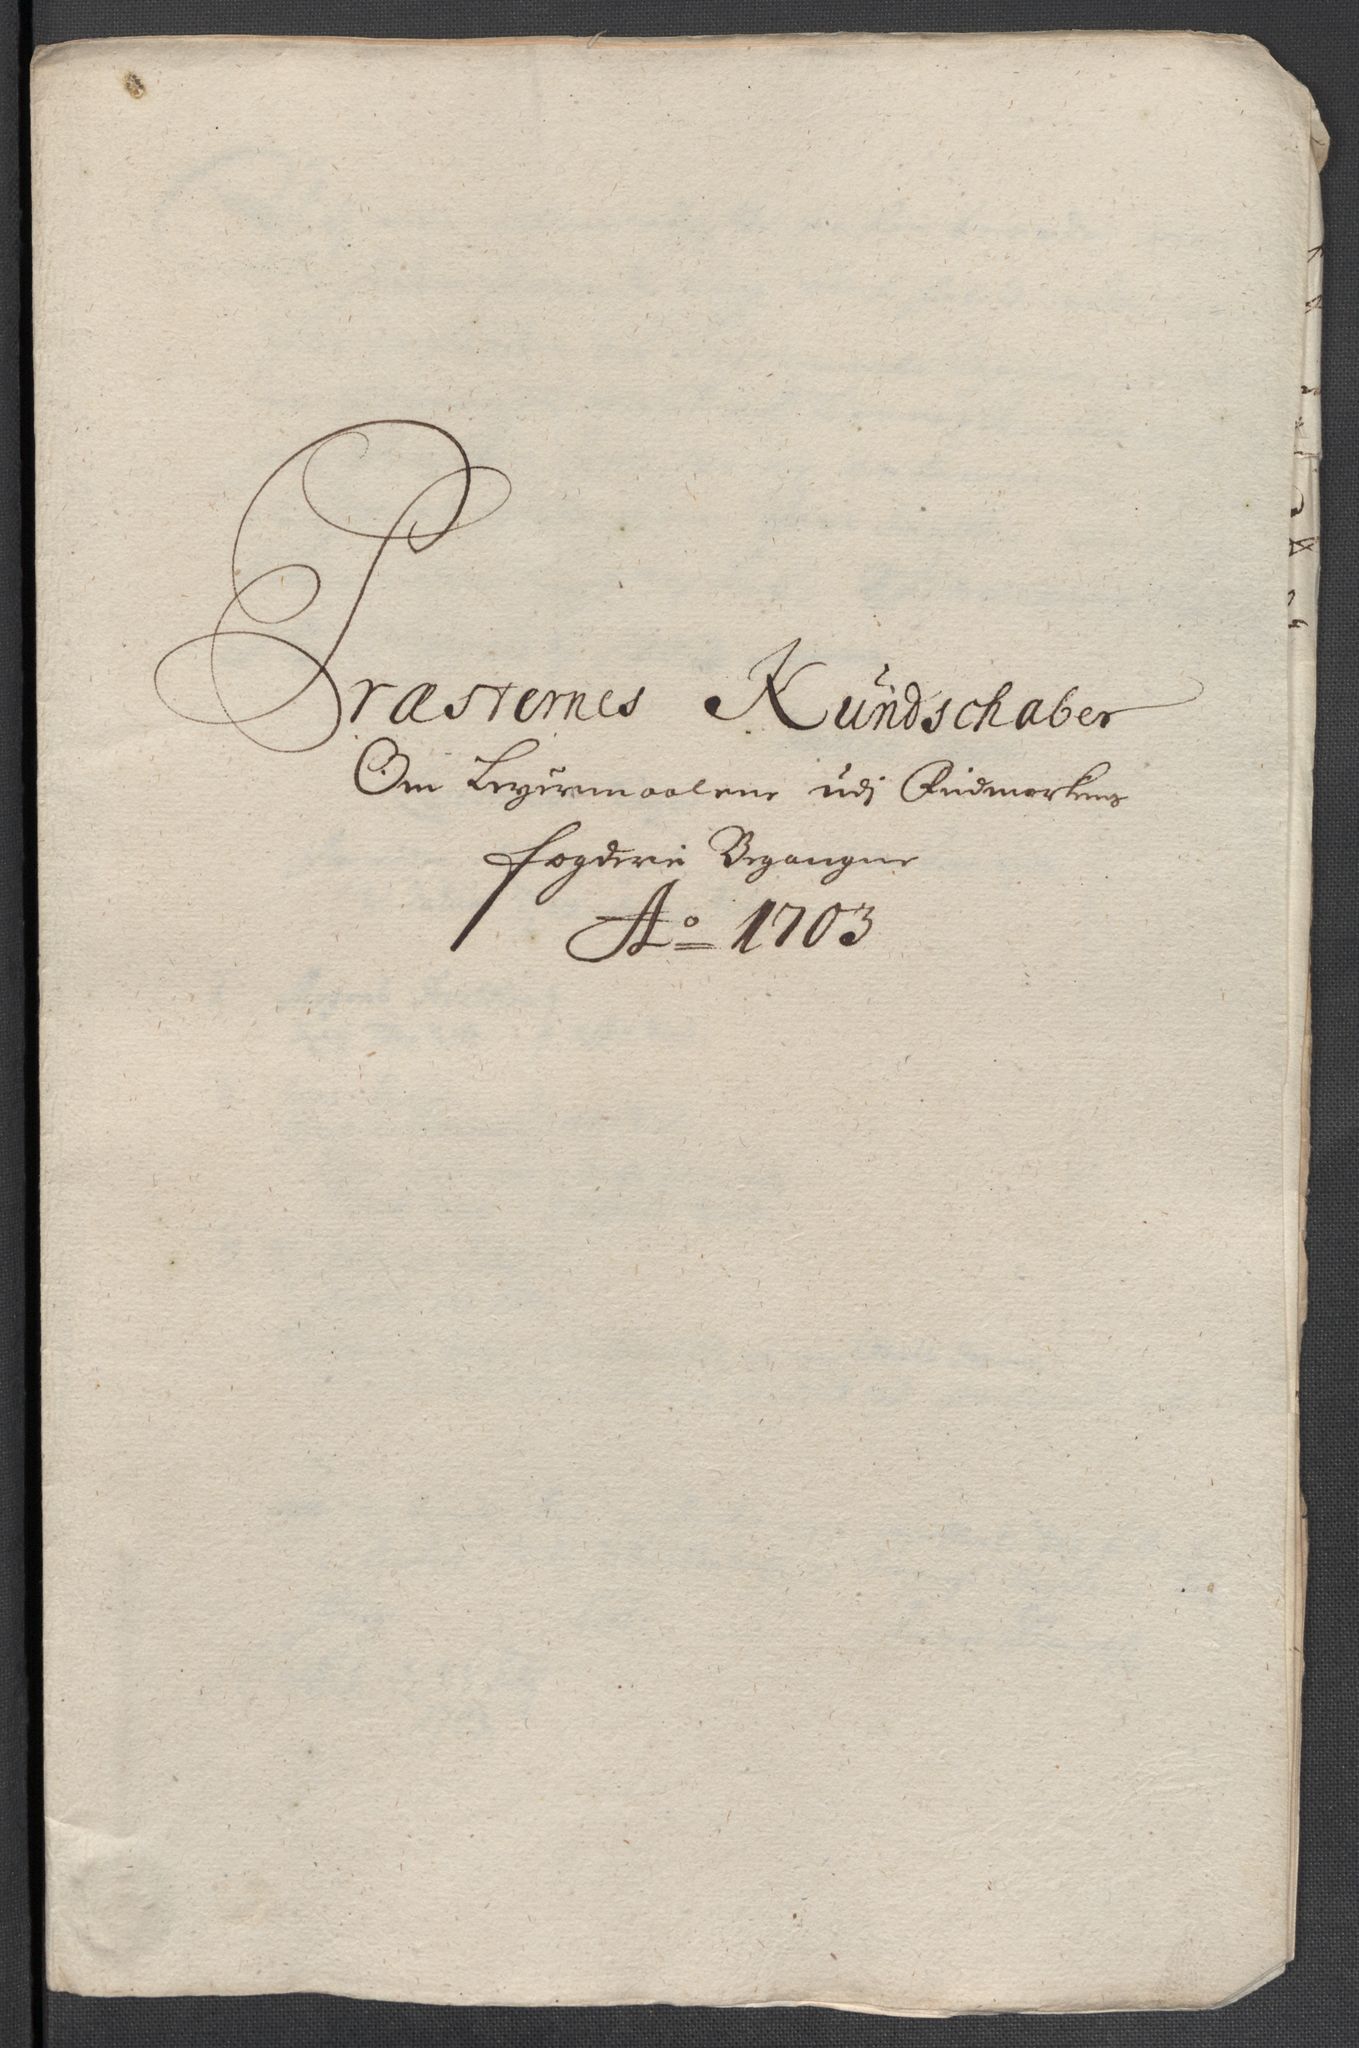 Præsternes Kundschaber
Om Leyermaalene udj Hedmarkens
fogderie Begangne
Ao 1703